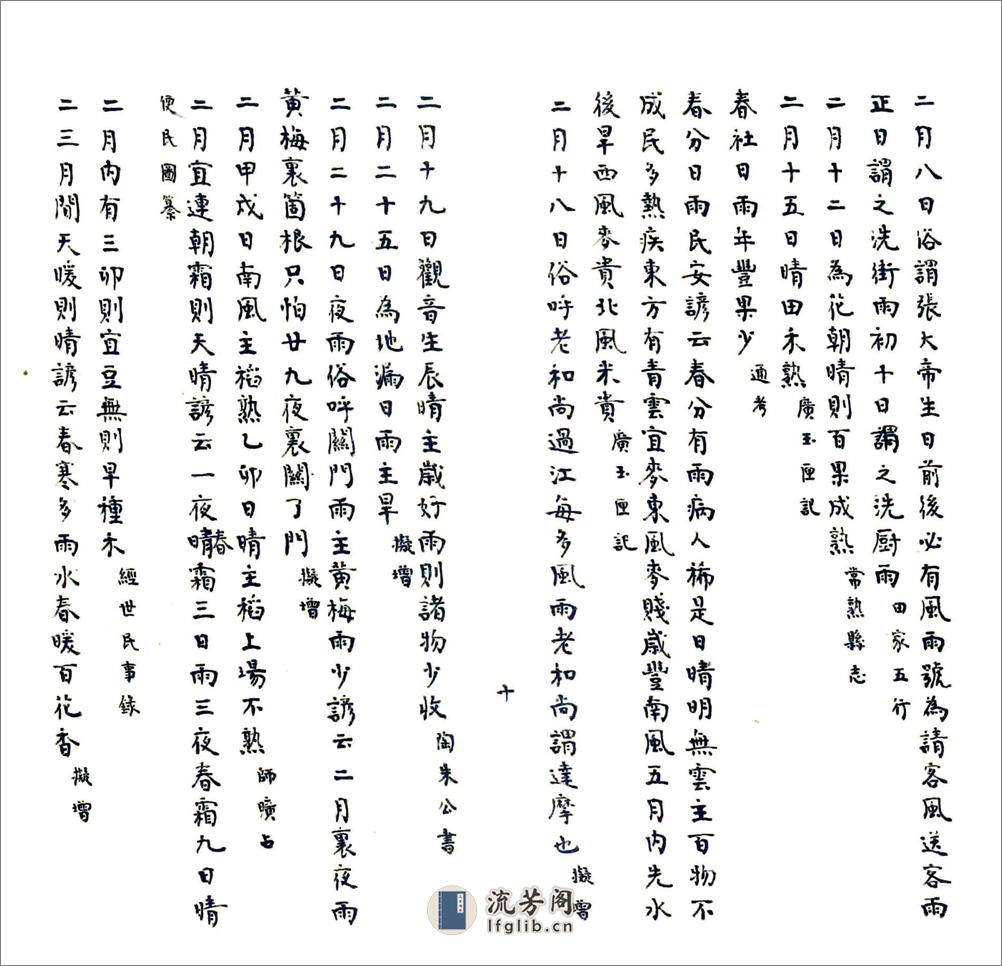 二月八日俗謂張大帝生日前後必有風雨號為請客風送客雨
正日謂之洗街雨初十日謂之洗厨雨 田家五行
二月十二日為花朝晴則百果成熟 常熟縣志
二月十五日晴田禾熟 廣玉匣記
春社日雨年豐果少 通考
春分日雨民安諺云春分有雨病人稀是日晴明無雲主百物不
成民多熱疾東方有青雲宜麥東風麥賤歲豐南風五月內先水
後旱西風麥貴北風米貴 廣玉匣記
二月十八日俗呼老和尚過江每多風雨老和尚謂達摩也 擬增
十
二月十九日觀音生辰晴主歲好雨則諸物少收 陶朱公書
二月二十五日為地漏日雨主旱 擬增
二月二十九日夜雨俗呼關門雨主黃梅雨少諺云二月裏夜雨
黃梅裏箇根只怕廿九夜裏關了門 擬增
二月甲戌日南風主稻熟乙卯日晴主稻上場不熟 師曠占
二月宜連朝霜則天晴諺云一夜春霜三日雨三夜春霜九日晴
便民圖纂
二月內有三卯則宜豆無則早種禾 經世民事錄
二三月間天暖則晴諺云春寒多雨水春暖百花香 擬增
流芳阁
lfglib.cn